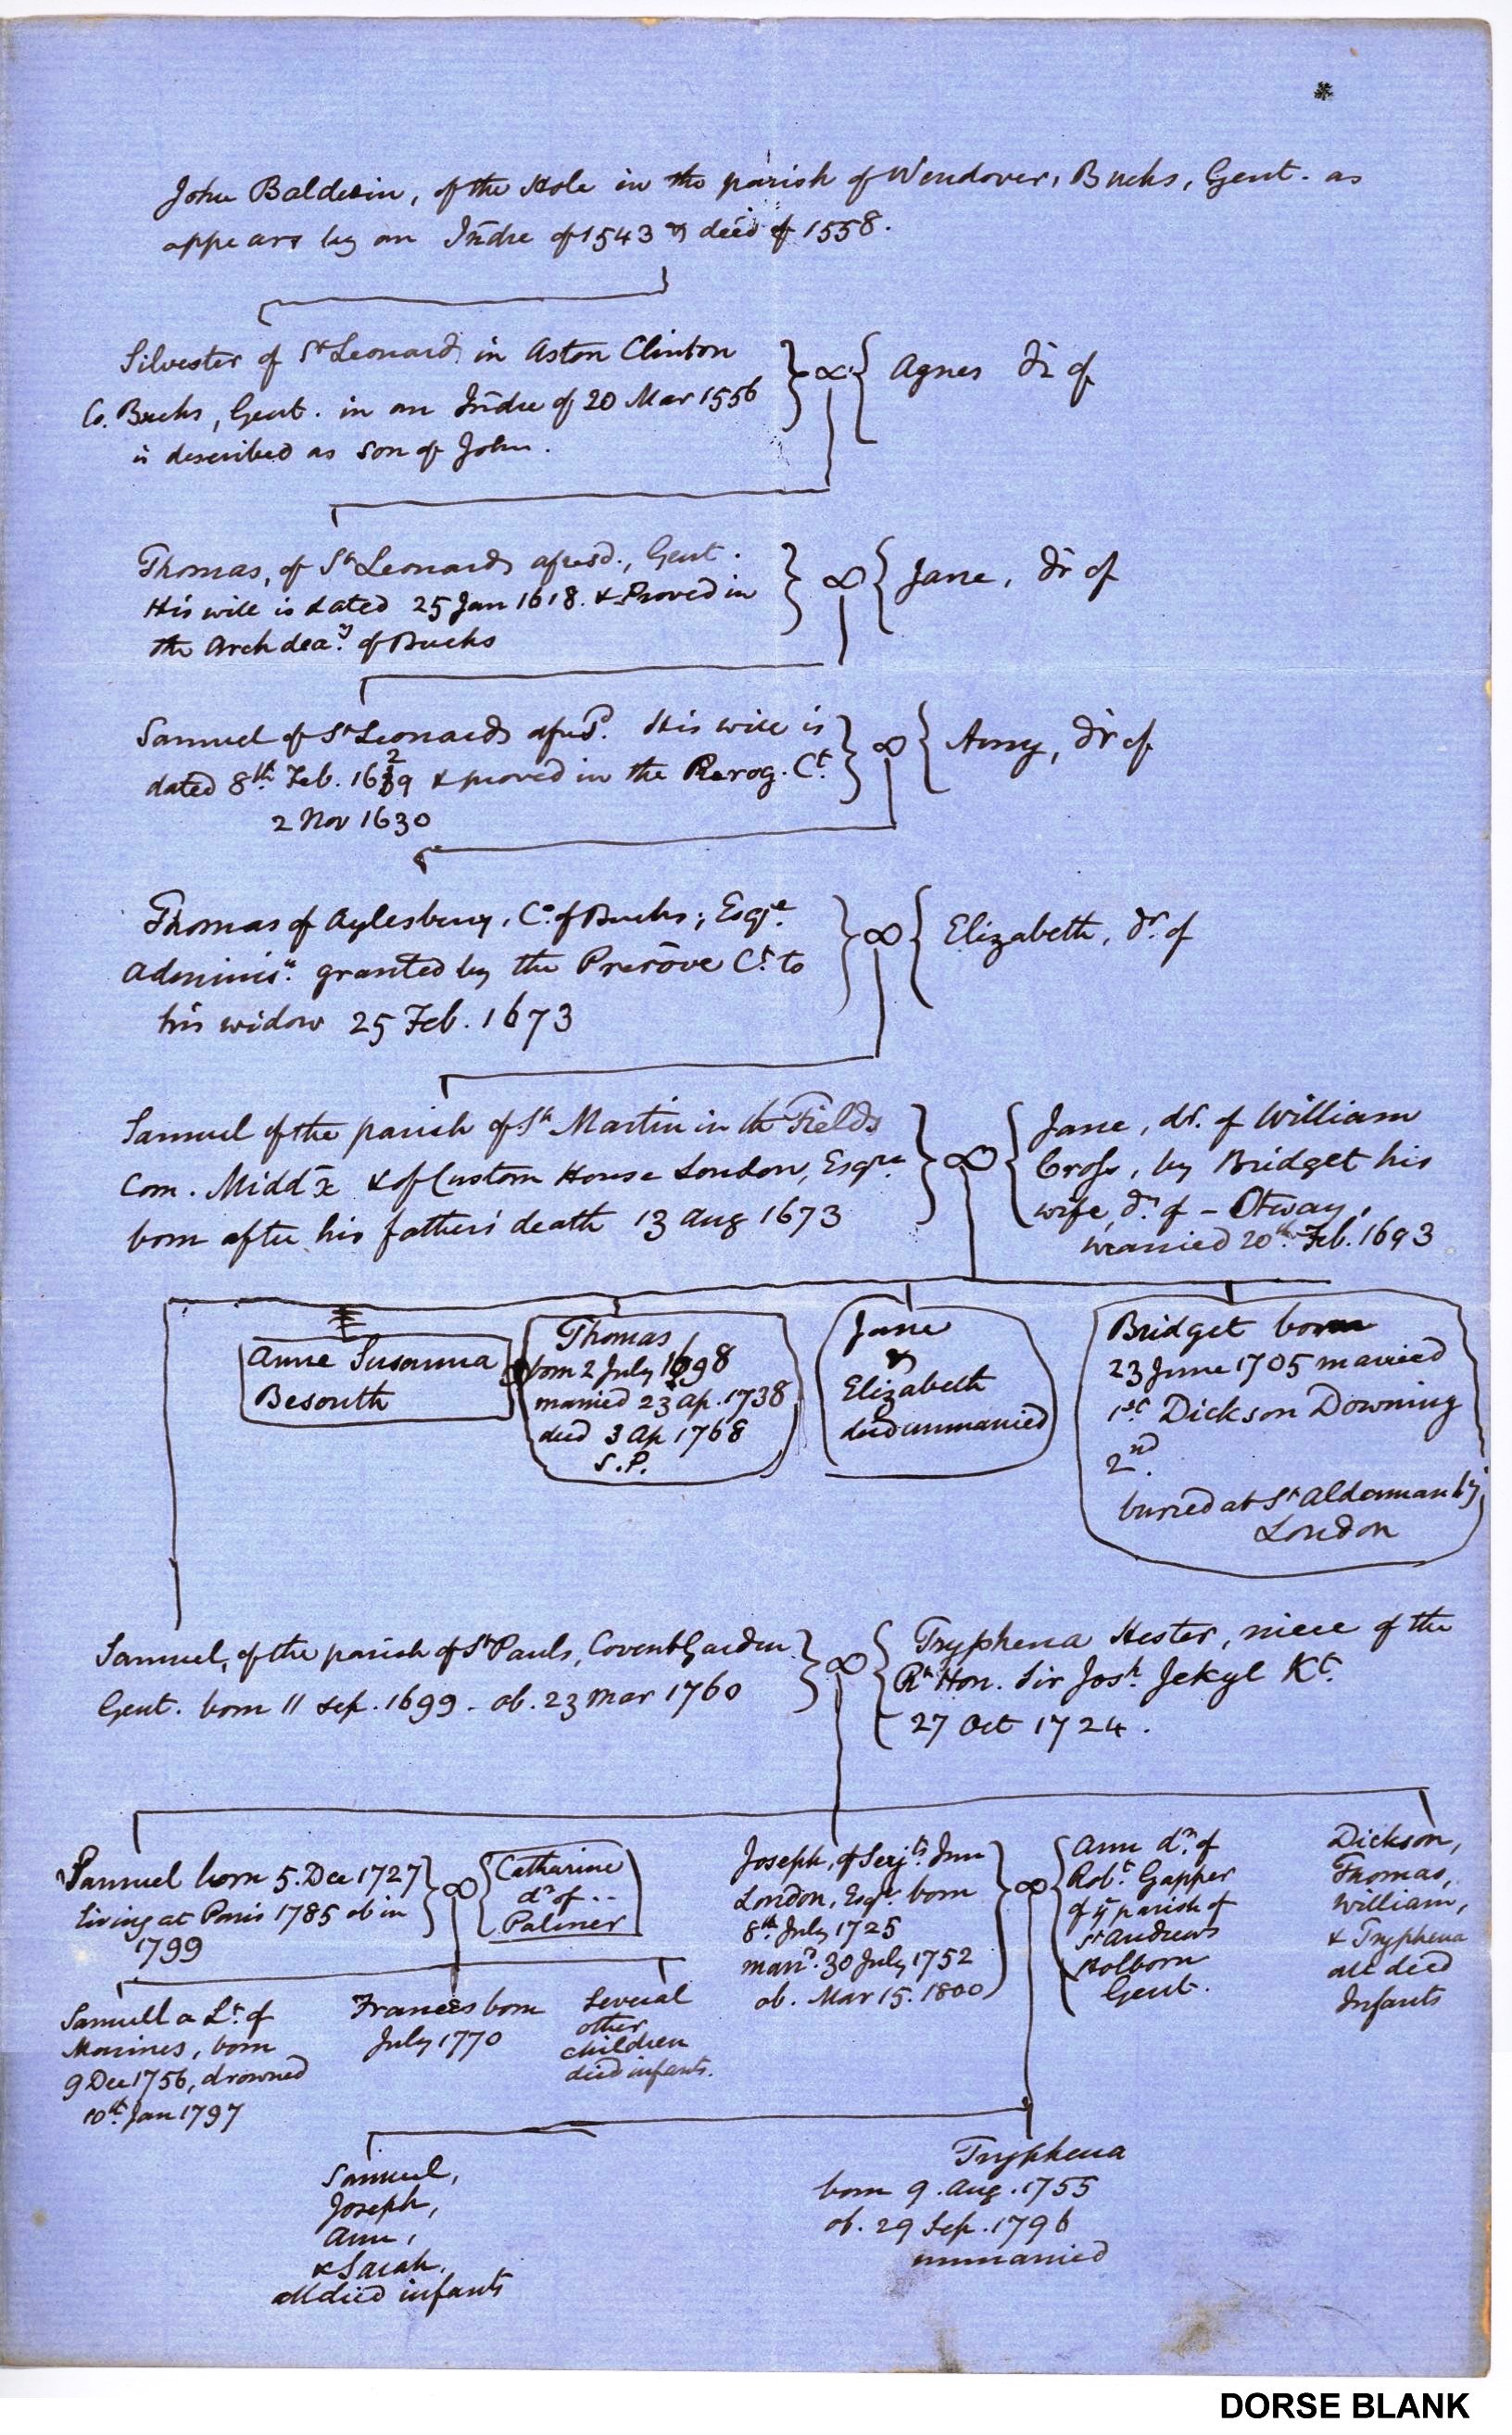 John Baldwin, of the Hole in the parish of Wendover, Bucks, Gent. as
appears by an Indre of 1543 & deed of 1558.
Silvester of St Leonards in Aston Clinton
Co. Bucks, Gent. in an Indre of 20 Mar 1556
is described as son of John.
∞
Agnes dr of
Thomas, of St Leonards aforesd., Gent.
His will is dated 25 Jan 1618. & Proved in
the Archdeary. of Bucks
∞
Jane, dr of
Samuel of St Leonards aforesd. His will is
dated 8th Feb. 1629 & proved in the Prerog. Ct.
2 Nov 1630
∞
Amy, dr of
Thomas of Aylesbury, Co. of Bucks; Esqre.
Adminison. granted by the Prerove Ct. to
his widow 25 Feb. 1673
∞
Elizabeth, dr. of
Samuel of the parish of St Martin in the Fields
Com. Middx & of Custom House London, Esqre.
born after his fathers' death 13 Aug 1673
∞
Jane, dr. of William
Cross, by Bridget his
wife, dr. of – Otway,
married 20th. Feb. 1693
Anne Susanna
Besouth
Thomas
born 2 July 1698
married 23 Ap. 1738
died 3 Ap 1768
S.P.
Jane
&
Elizabeth
died unmarried
Bridget born
23 June 1705 married
1st Dickson Downing
2nd.
buried at St Aldermanby
London
Samuel, of the parish of St Pauls, Covent Garden
Gent. born 11 Sep. 1699 - ob. 23 Mar 1760
∞
Tryphena Hester, niece of the
Rt Hon. Sir Josh. Jekyl Kt.
27 Oct 1724.
Samuel born 5. Dec 1727
living at Paris 1785 ob in
1799
∞
Catharine
dr of ..
Palmer
Joseph, of Serjts. Inn
London, Esqr. born
8th July 1725
marrd. 30 July 1752
ob. Mar 15. 1800
∞
Ann dr. of
Robt. Gapper
of ye parish of
St Andrews
Holborn
Gent.
Dickson,
Thomas,
William,
& Tryphena
all died
Infants
Samuell a Lt. of
Marines, born
9 Dec 1756, drowned
10th. Jan 1797
Frances born
July 1770
Several
other
children
died infants.
Samuel,
Joseph,
Ann,
& Sarah,
all died infants
Tryphena
born 9. Aug. 1755
ob. 29 Sep. 1796
unmarried
DORSE BLANK